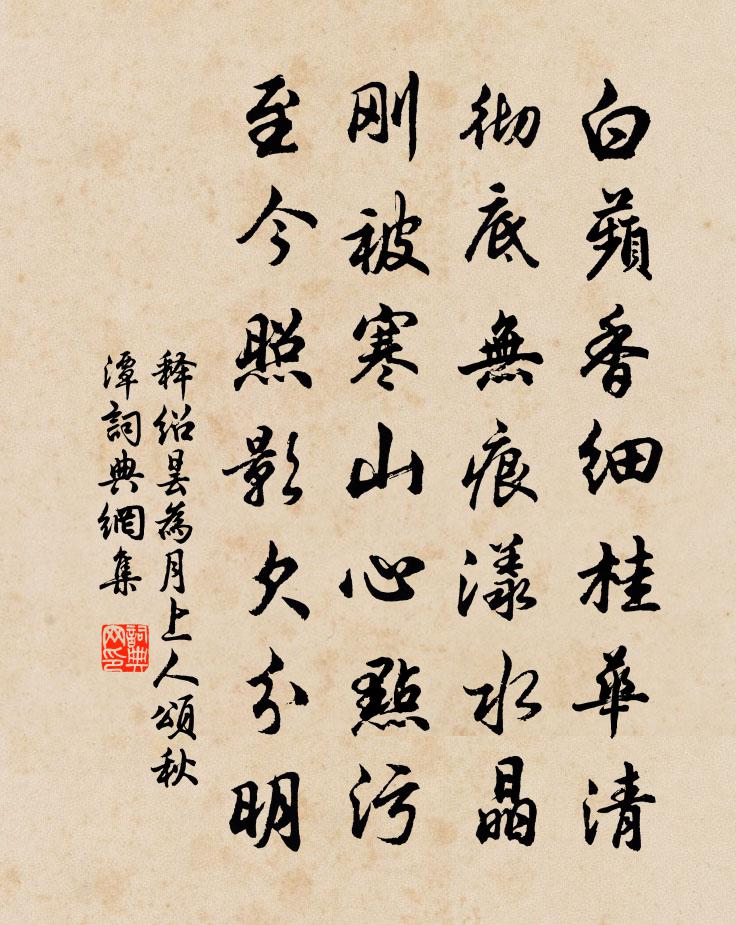 白蘋香細桂華清
彻底無痕漾水晶
刚被寒山心點污
至今照影欠分明
释绍昙為月上人頌秋
潭詞典網集
詞典
网印